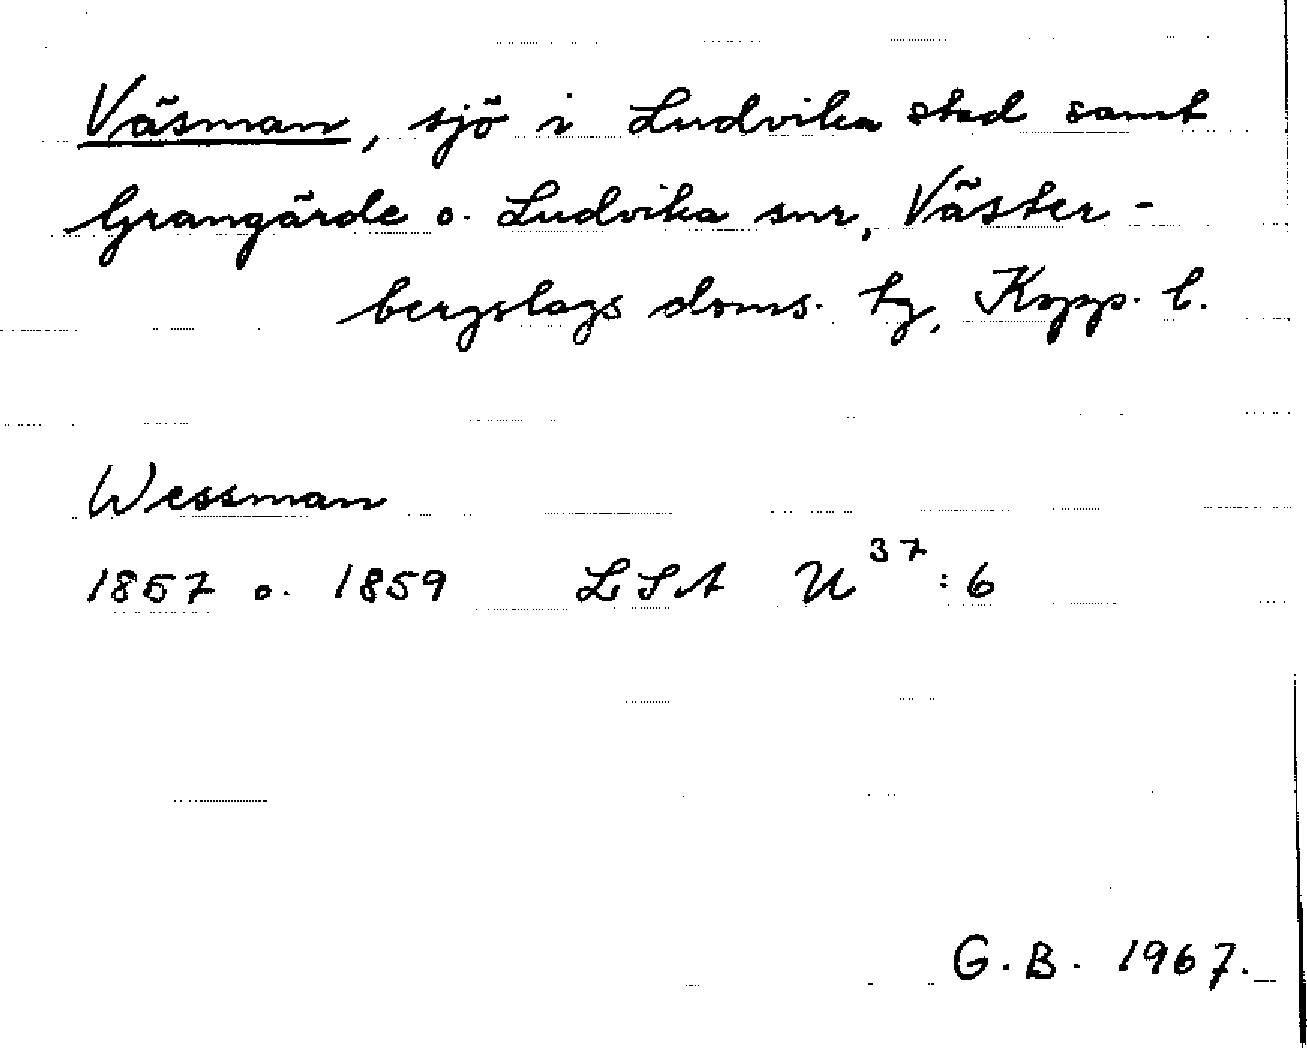 Väsman, sjö i Ludvika stad samt
Grangärde o. Ludvika snr, Väster-
bergslags doms. tg, Kopp. l.
Wessman
1857 o. 1859 LSA U37:6
G.B. 1967.